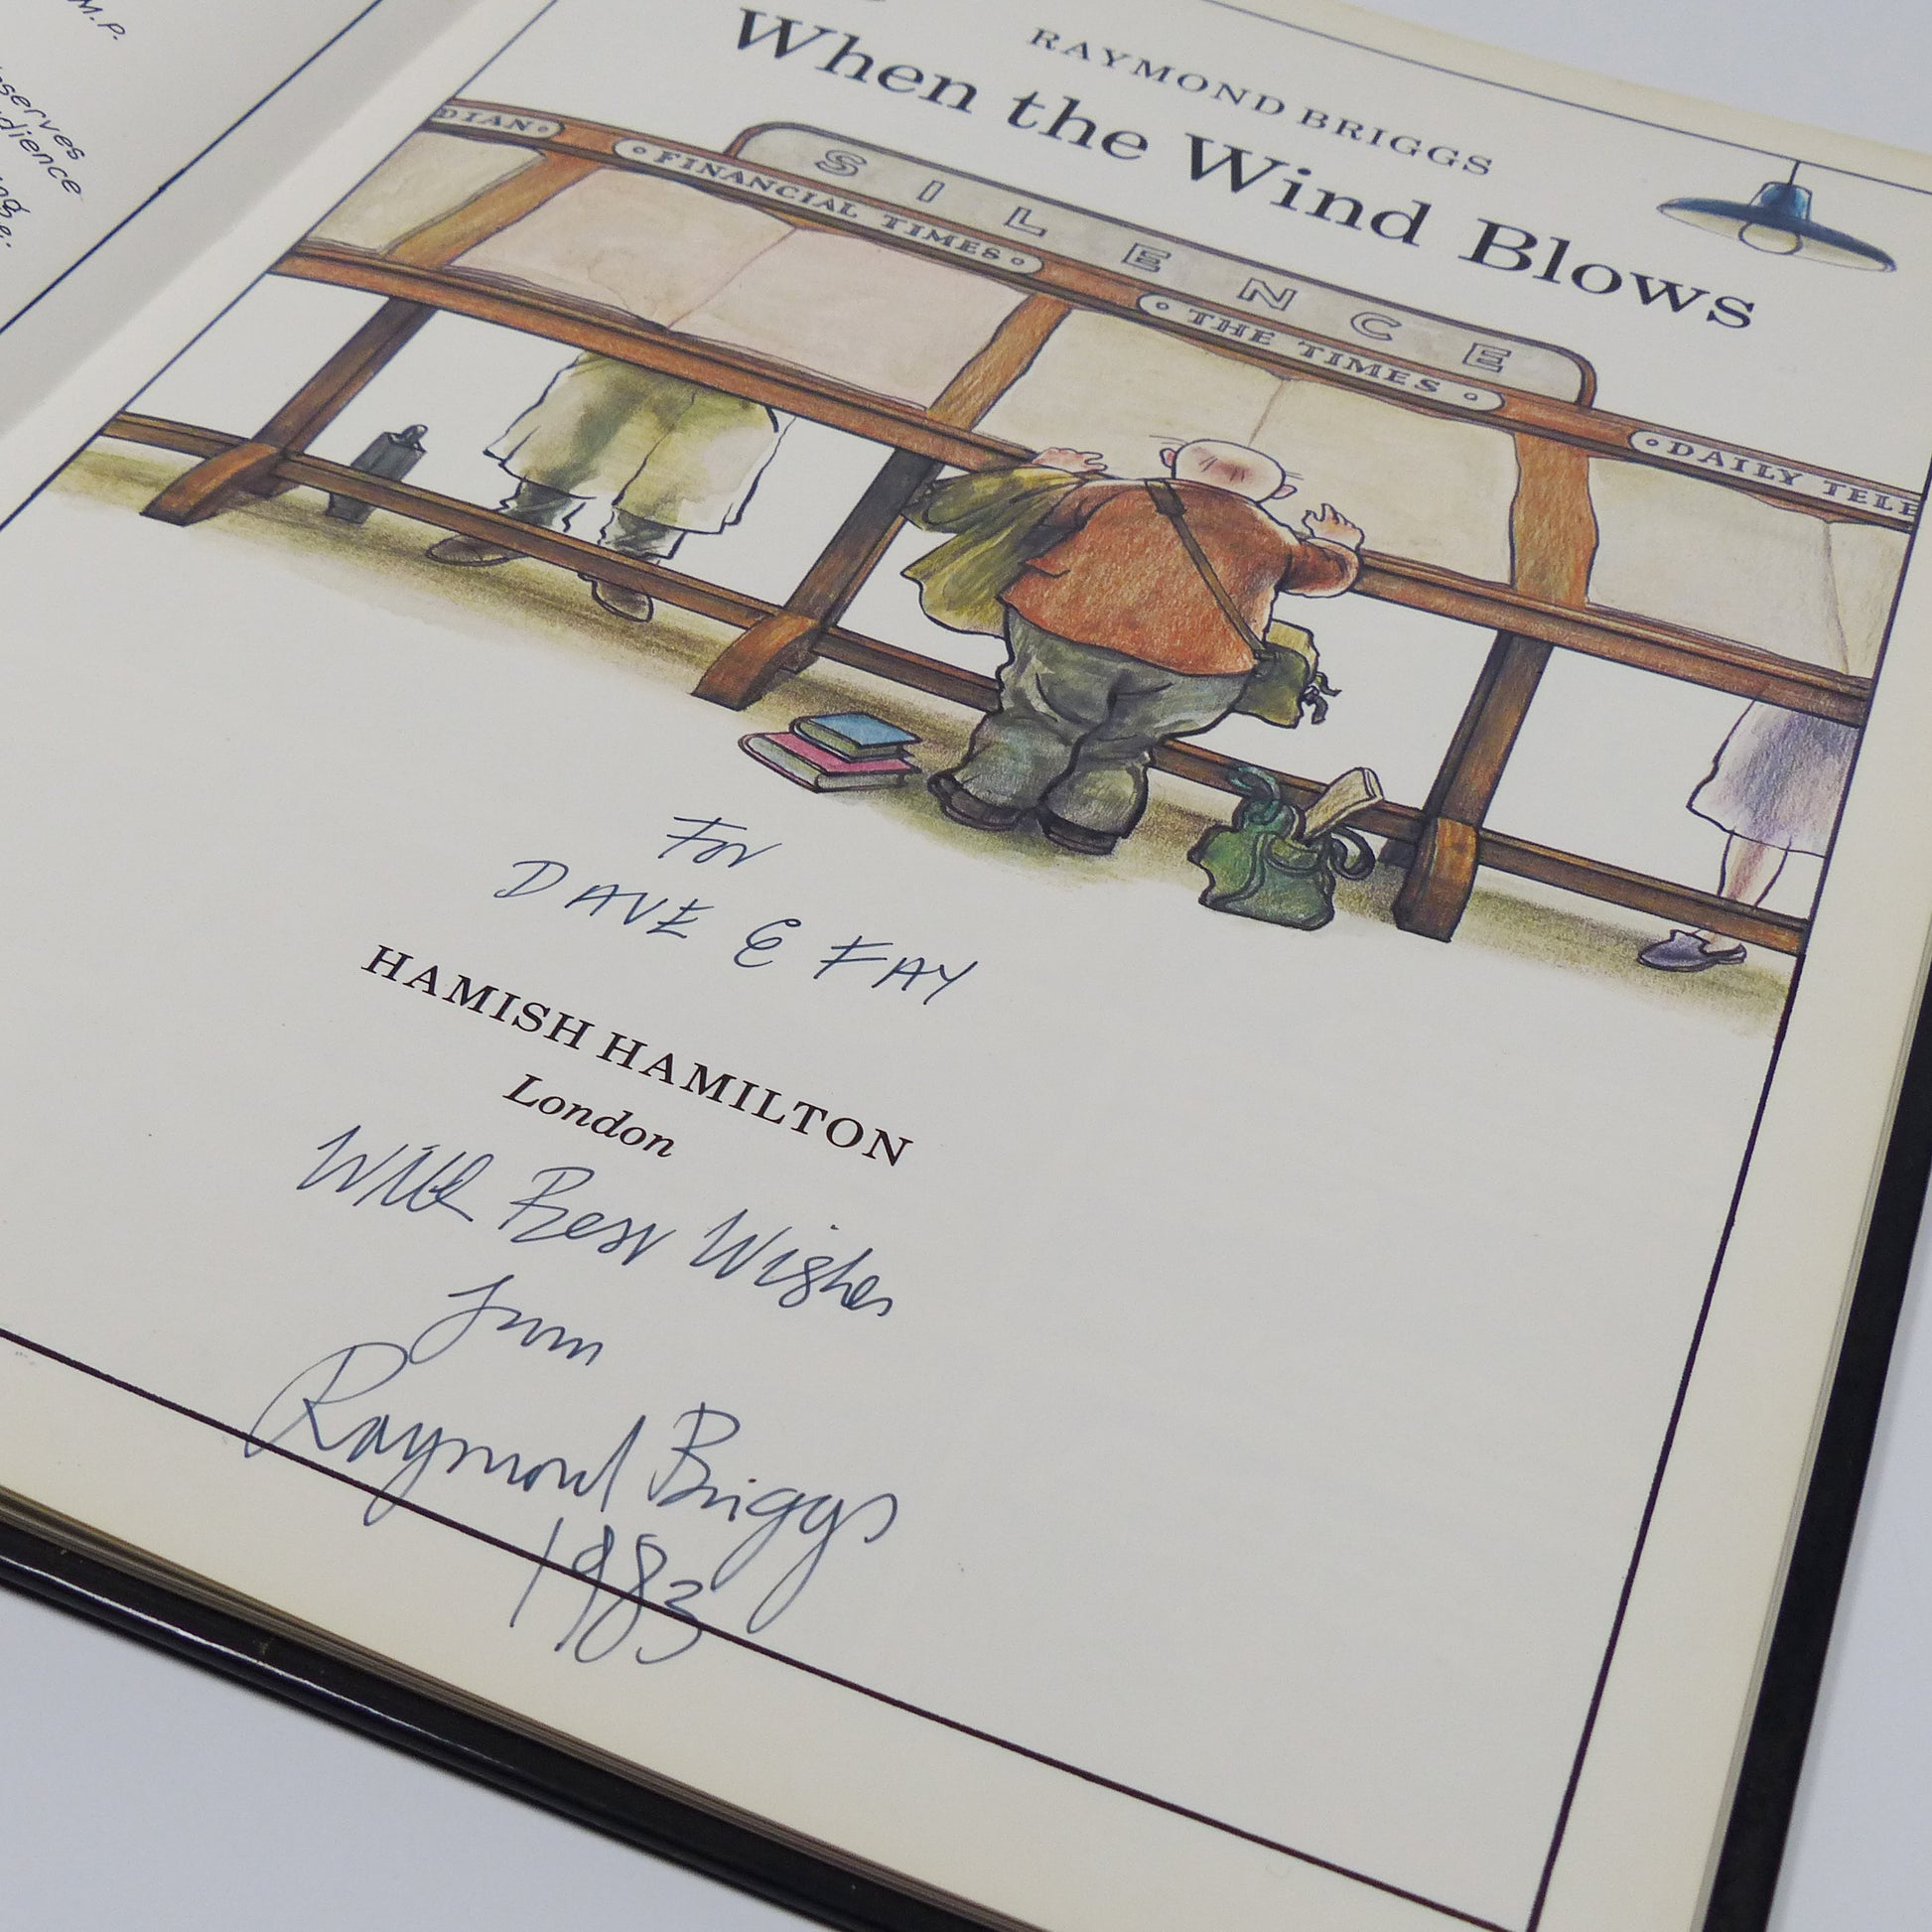 M.P.
serves
dience
ng
e.
RAYMOND BRIGGS
When the Wind Blows
SILENCE
DIAN
FINANCIAL TIMES
THE TIMES
DAILY TELE
For
DAVE & FAY
HAMISH HAMILTON
London
With Best Wishes
from
Raymond Briggs
1983